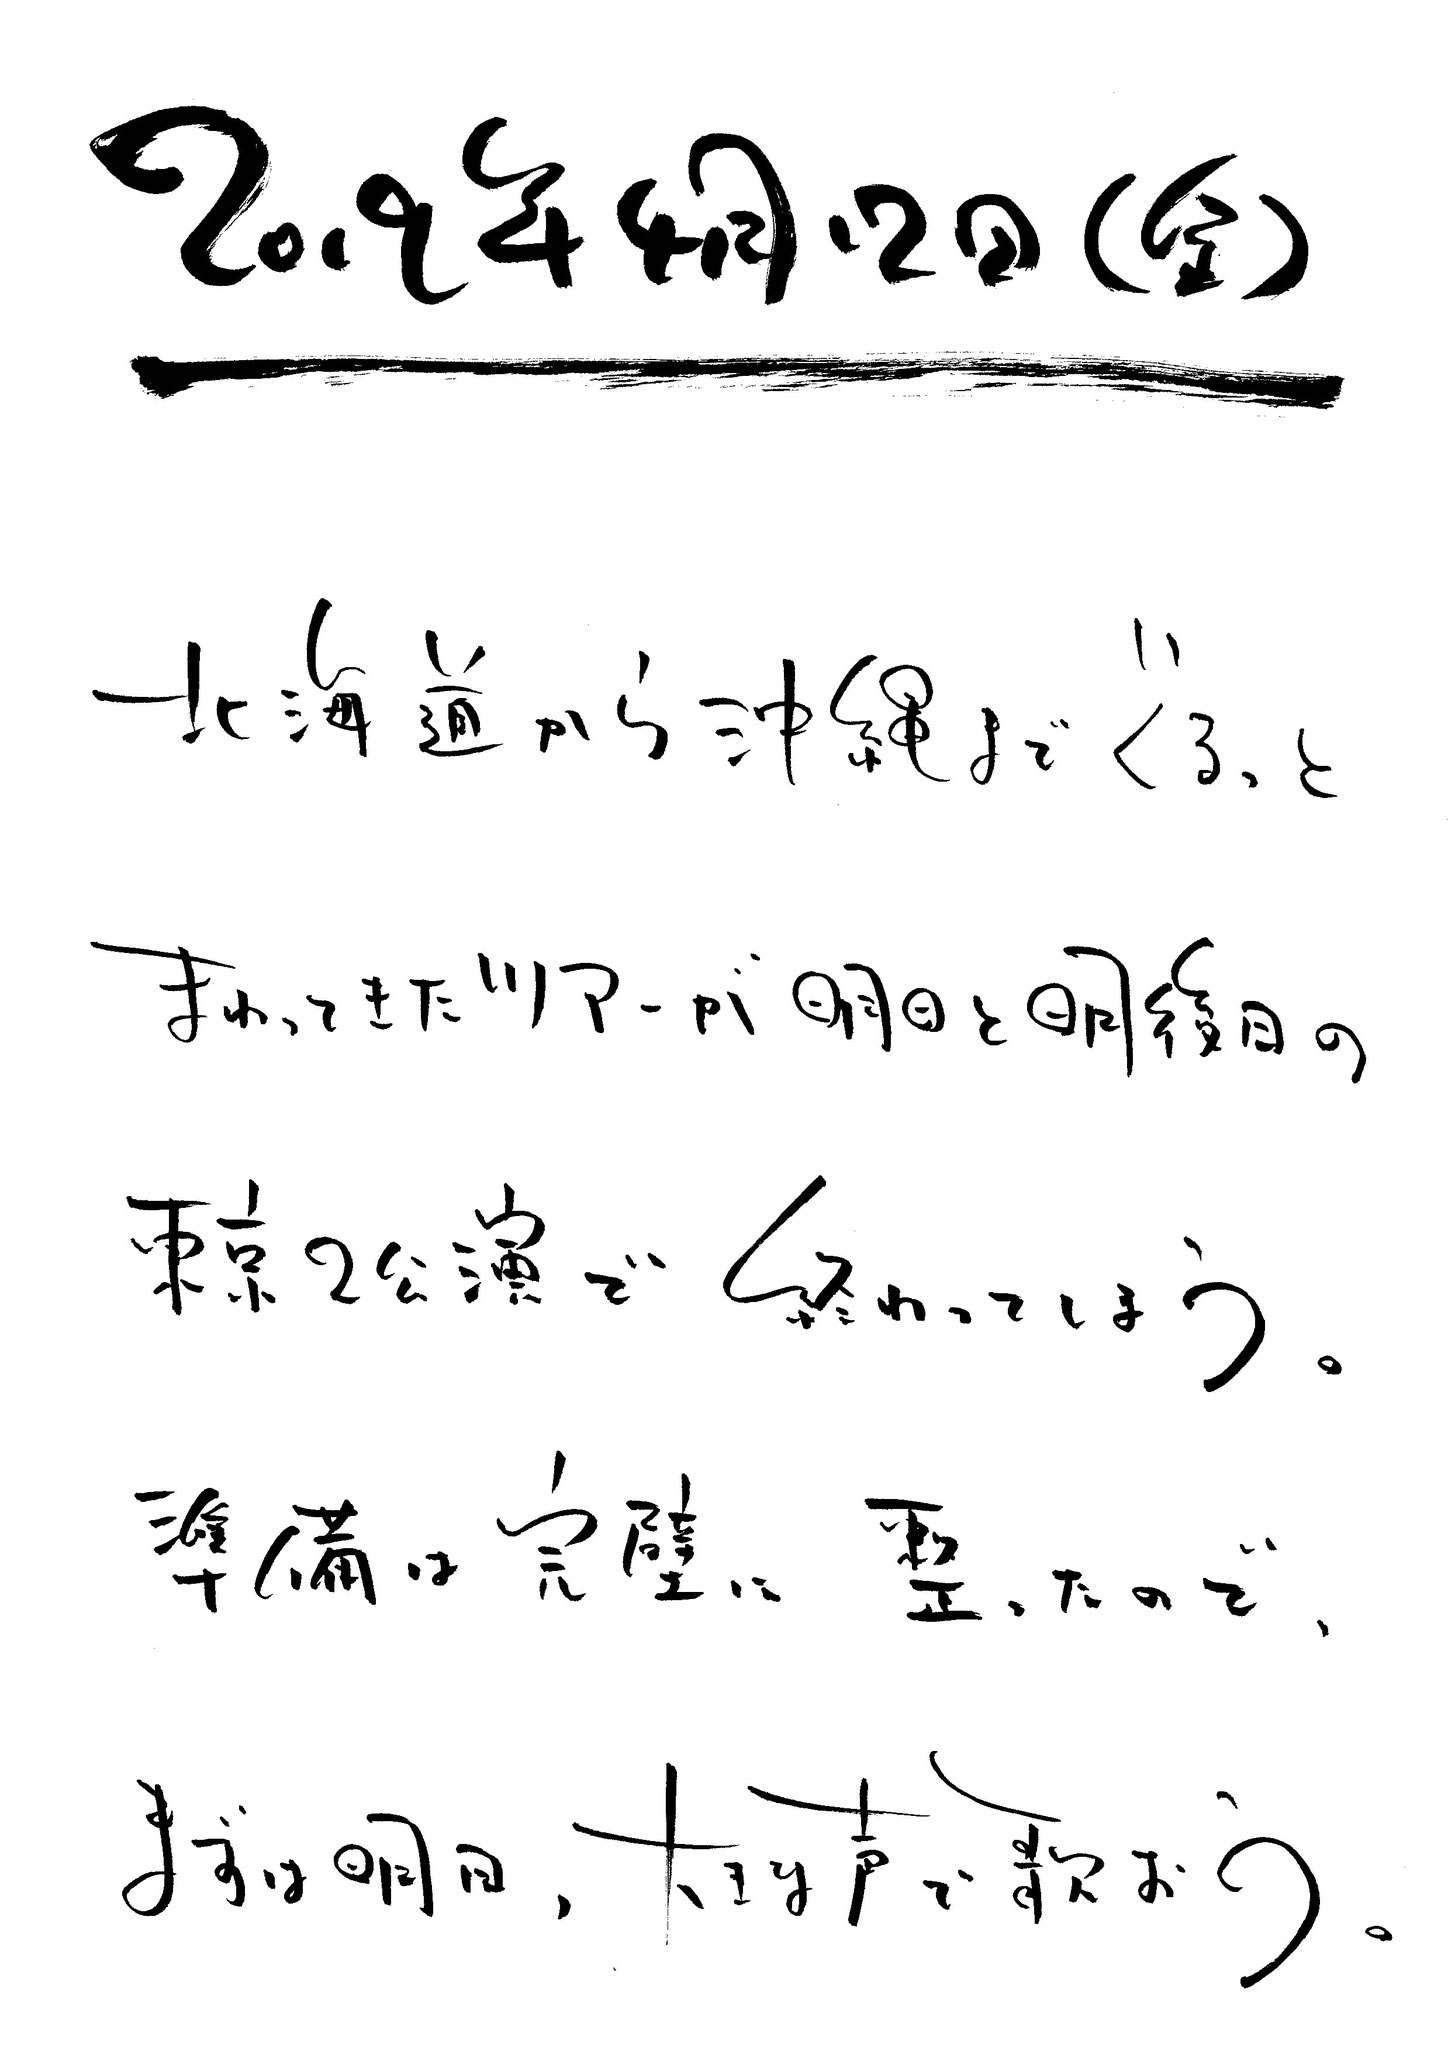 2019年4月12日(金)
北海道から沖縄までぐるっと
まわってきたツアーが明日と明後日の
東京2公演で終わってしまう。
準備は完璧に整ったので、
まずは明日、大きな声で歌おう。